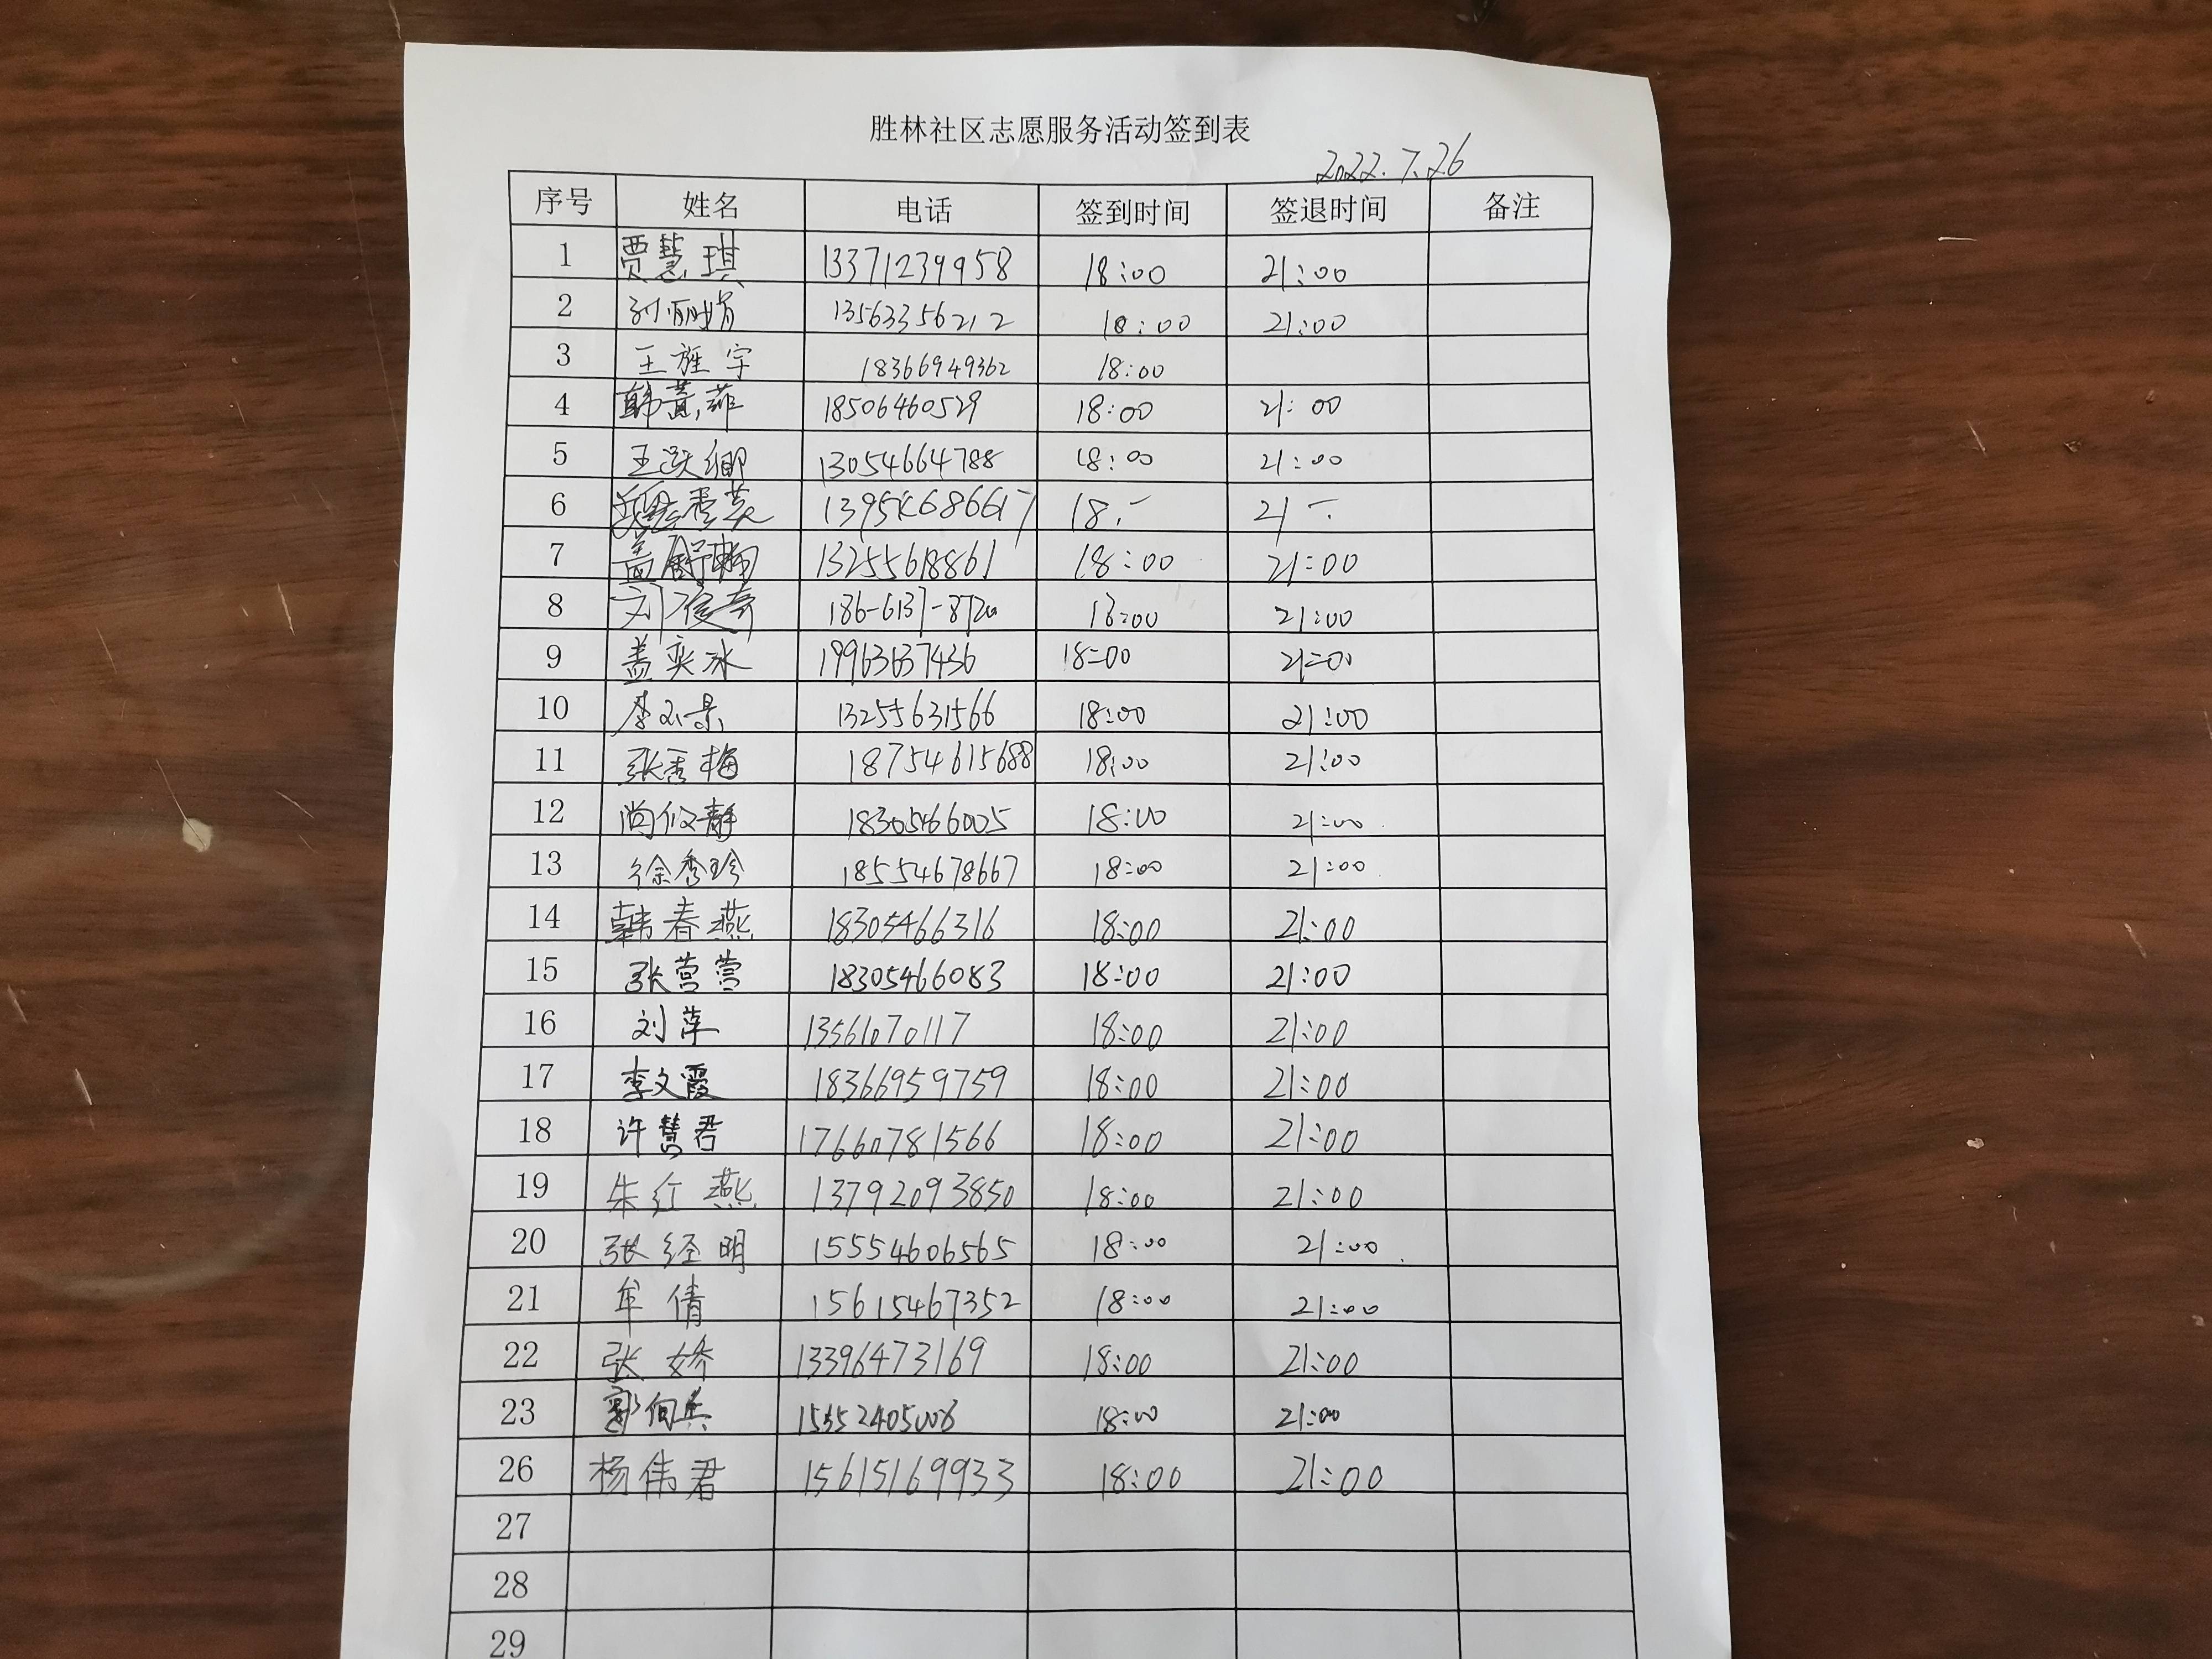 胜林社区志愿服务活动签到表
2022.7.26
序号 姓名 电话 签到时间 签退时间 备注
1 贾慧琪 13371239958 18:00 21:00
2 孙丽娟 13563356212 18:00 21:00
3 王旌宇 18366949362 18:00
4 韩菲 18506460529 18:00 21:00
5 王 13054664788 18:00 21:00
6 魏秀英 18 21
7 盖舒翰 13255618861 18:00 21:00
8 刘俊奇 186-6137-8720 18:00 21:00
9 盖奕冰 19963637436 18:00 21:00
10 李玉景 13255631566 18:00 21:00
11 张秀梅 18754615688 18:00 21:00
12 尚静 18305466005 18:00 21:00
13 徐秀珍 18554678667 18:00 21:00
14 韩春燕 18305466316 18:00 21:00
15 张营营 18305466083 18:00 21:00
16 刘萍 13561070117 18:00 21:00
17 李文霞 18366959759 18:00 21:00
18 许慧君 17660781566 18:00 21:00
19 朱红燕 13792093850 18:00 21:00
20 张经明 15554606565 18:00 21:00
21 牟倩 15615467352 18:00 21:00
22 张娇 13396473169 18:00 21:00
23 郭向兵 18:00 21:00
26 杨伟君 15615169933 18:00 21:00
27
28
29